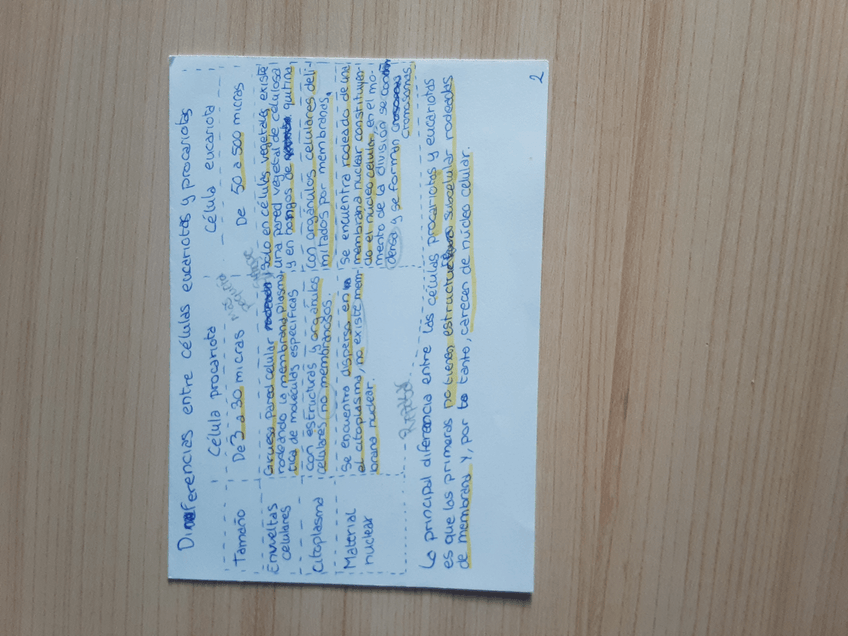 Diferencias entre células eucariotas y procariotas
Célula procariota
Célula eucariota
Tamaño
De 3 a 30 micras
De 50 a 500 micras
Envueltas
celulares
Gruesa pared celular
rodeando la membrana plasmá
tica de moléculas específicas
sólo en células vegetales, existe
una pared vegetal de celulosa
y en hongos de quitina
Citoplasma
con estructuras y orgánulos
celulares no membranosos.
Con orgánulos celulares deli-
mitados por membranas.
Material
nuclear
Se encuentra disperso en
el citoplasma, no existe mem-
brana nuclear.
Se encuentra rodeado de una
membrana nuclear constituyen-
do el núcleo celular, en el mo-
mento de la división se con
densa y se forman
cromosomas.
La principal diferencia entre las células procariotas y eucariotas
es que las primeras no tienen estructura subcelular rodeadas
de membrana y, por tanto, carecer de núcleo celular.
2